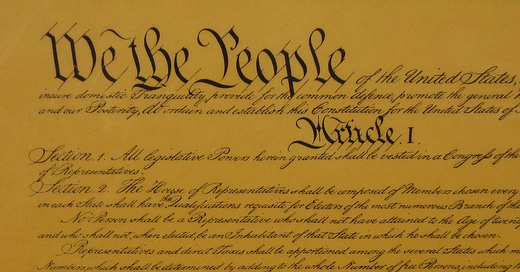 We the People of the United States,
insure domestic Tranquility, provide for the common defence, promote the general
and our Posterity, do ordain and establish this Constitution for the United States of
Article. I.
Section. 1. All legislative Powers herein granted shall be vested in a Congress of the
of Representatives.
Section. 2. The House of Representatives shall be composed of Members chosen every
in each State shall have the Qualifications requisite for Electors of the most numerous Branch of the
No Person shall be a Representative who shall not have attained to the Age of twenty
and who shall not, when elected, be an Inhabitant of that State in which he shall be chosen.
Representatives and direct Taxes shall be apportioned among the several States which
Numbers, which shall be determined by adding to the whole Number of free Persons, including